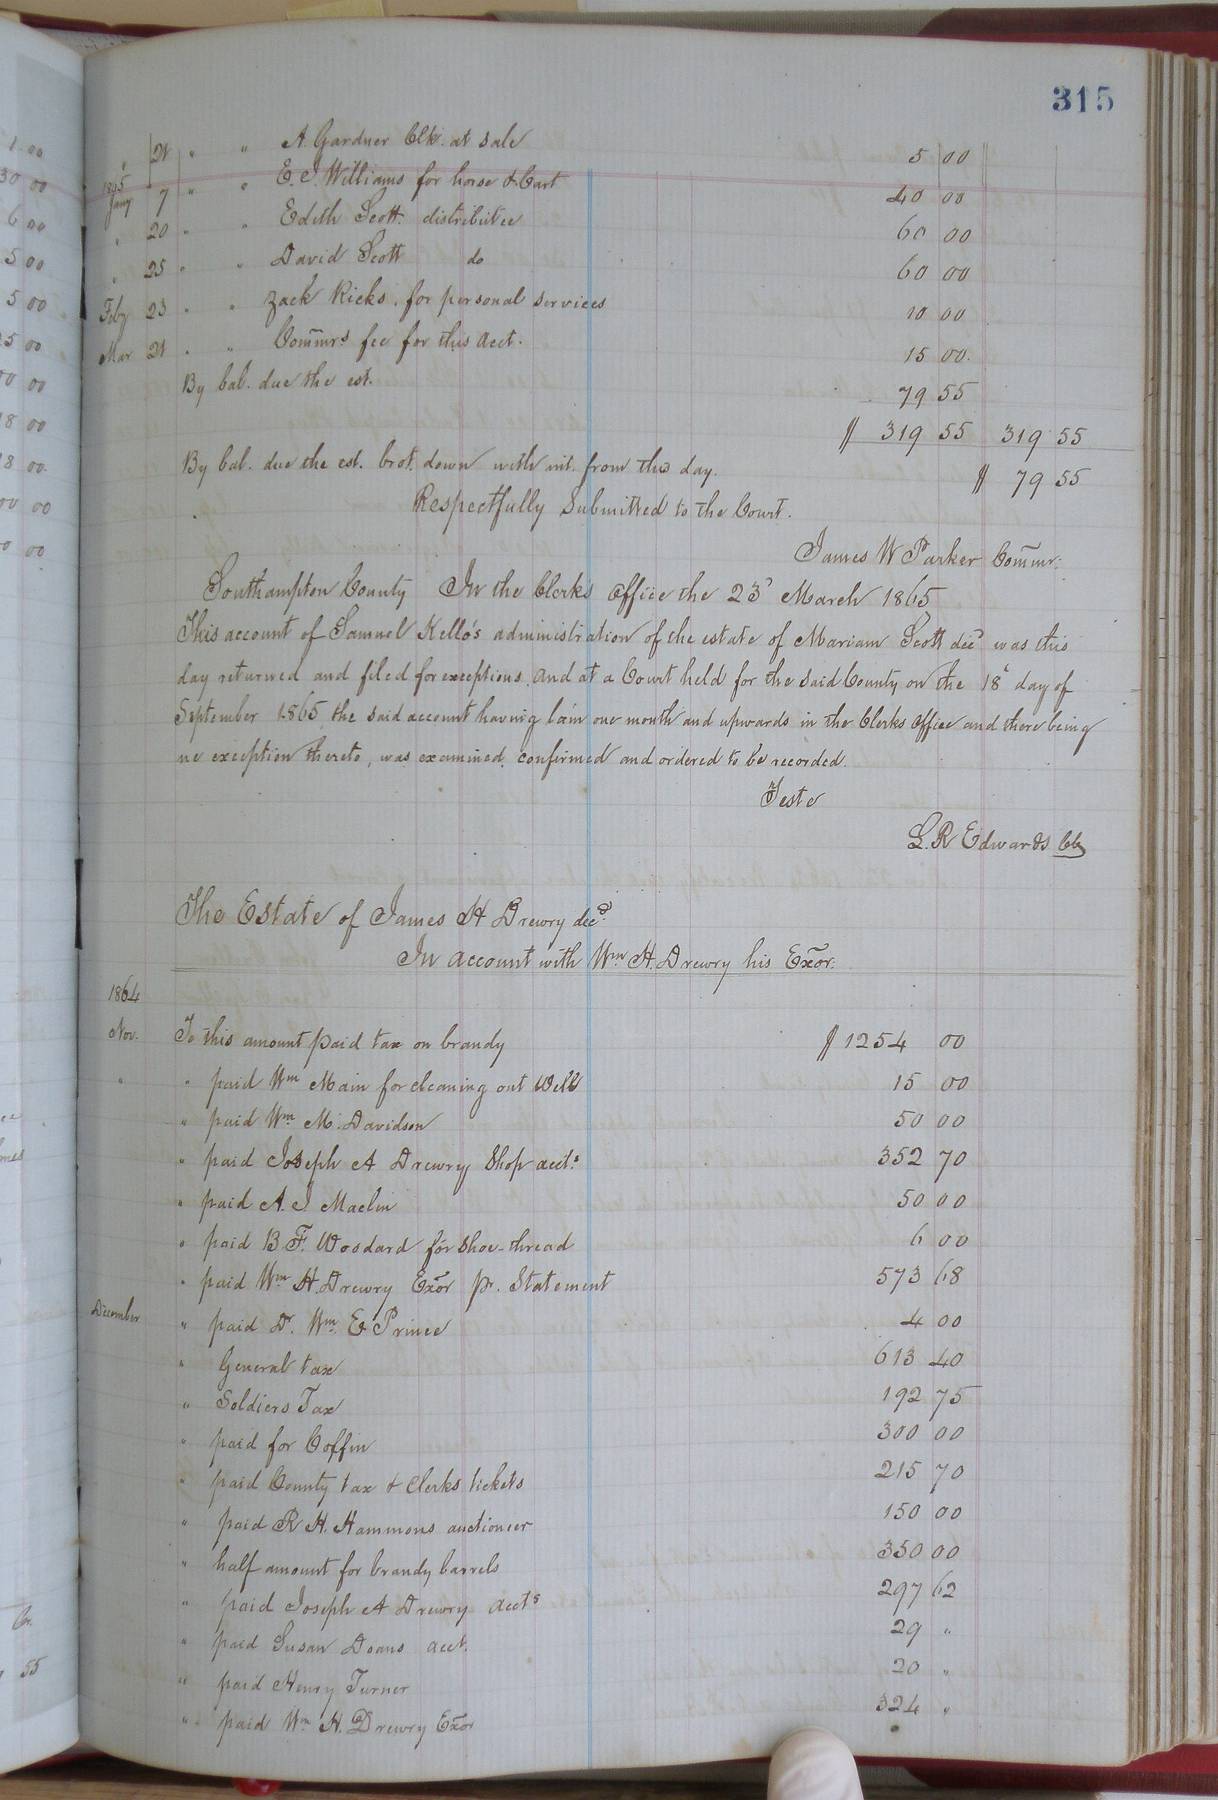 315
" 21 " " A. Gardner Clk. at sale 5 00
1865 Jany 7 " " E. J. Williams for horse & Cart 40 00
" 20 " " Edith Scott distributee 60 00
" 25 " " David Scott do 60 00
Feby 23 " " Zack Ricks, for personal services 10 00
Mar 21 " " Commrs fee for this acct. 15 00
By bal. due the est. 79 55
$ 319 55 319 55
By bal. due the est. brot. down with int. from this day. $ 79 55
Respectfully Submitted to the Court.
James W Parker Commr.
Southampton County In the Clerks Office the 23d March 1865
This account of Samuel Kello's administration of the estate of Mariam Scott decd was this
day returned and filed for exceptions. And at a Court held for the said County on the 18th day of
September 1865 the said account having lain one month and upwards in the Clerks Office and there being
no exception thereto, was examined, confirmed and ordered to be recorded.
Teste
L. R Edwards Clk
The Estate of James H Drewry decd.
In account with Wm H. Drewry his Exor.
1864
Nov. To this amount paid tax on brandy $ 1254 00
" " paid Wm Main for cleaning out Well 15 00
" paid Wm M. Davidson 50 00
" paid Joseph A Drewry Shop accts 352 70
" paid A. J Maclin 50 00
" paid B. F. Woodard for Shoe-thread 6 00
" paid Wm H. Drewry Exor pr. Statement 573 68
December " paid D. Wm E Prince 4 00
" General tax 613 40
" Soldiers Tax 192 75
" paid for Coffin 300 00
" paid County tax & Clerks tickets 215 70
" paid R H. Hammons auctioneer 150 00
" half amount for brandy barrels 350 00
" paid Joseph A Drewry accts 297 62
" paid Susan Doans acct. 29 "
" paid Henry Turner 20 "
" paid Wm H. Drewry Exor 324 "